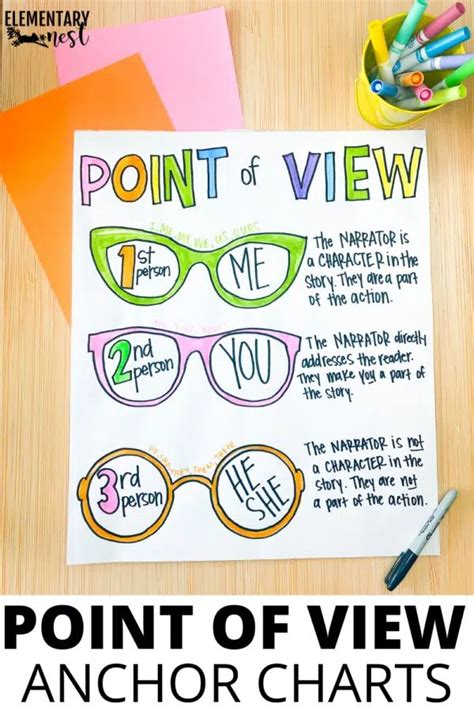 ELEMENTARY
nest
POINT of VIEW
I, ME, MY, WE, US, OURS
1st
person
ME
The NARRATOR is
a CHARACTER in the
story. They are a part
of the action.
2nd
person
YOU
The NARRATOR directly
addresses the reader.
They make you a part of
the story.
3rd
person
HE
SHE
The NARRATOR is not
a CHARACTER in the
story. They are not
a part of the action.
POINT OF VIEW
ANCHOR CHARTS